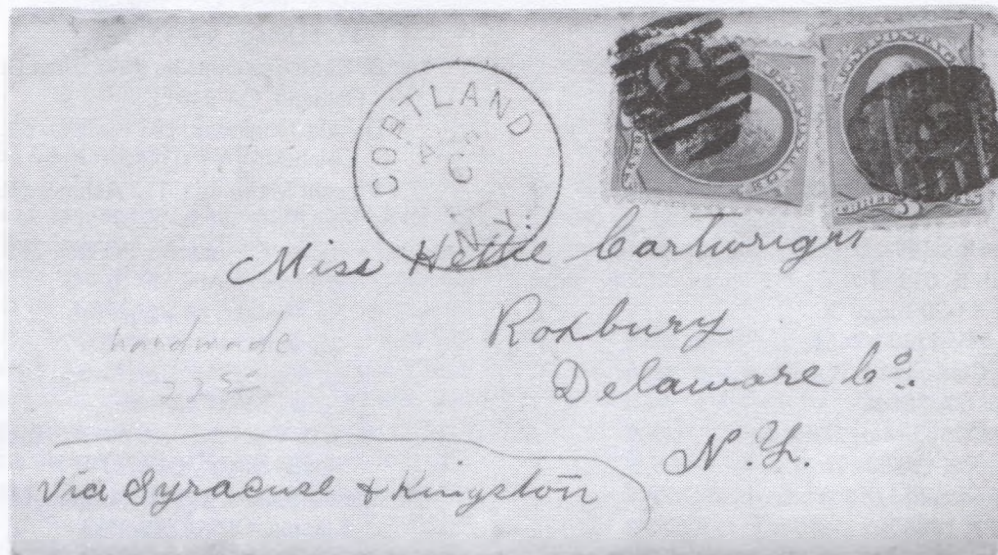 CORTLAND
N.Y.
Miss Hettie Cartwright
Roxbury
Delaware Co.
N.Y.
handmade
22 50
via Syracuse & Kingston